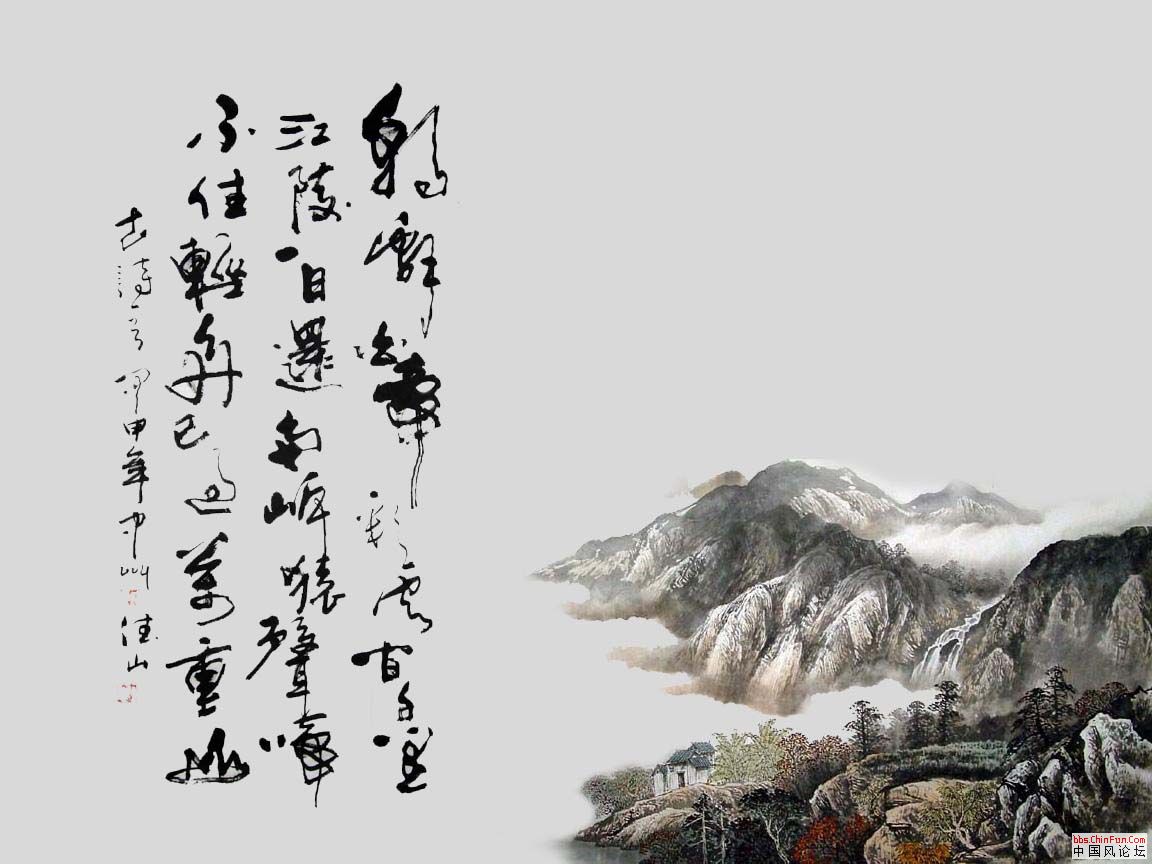 朝辭白帝彩雲間千里
江陵一日還兩岸猿聲啼
不住輕舟已過萬重山
古詩一首甲申年中州山
bbs.ChinFun.Com
中国风论坛